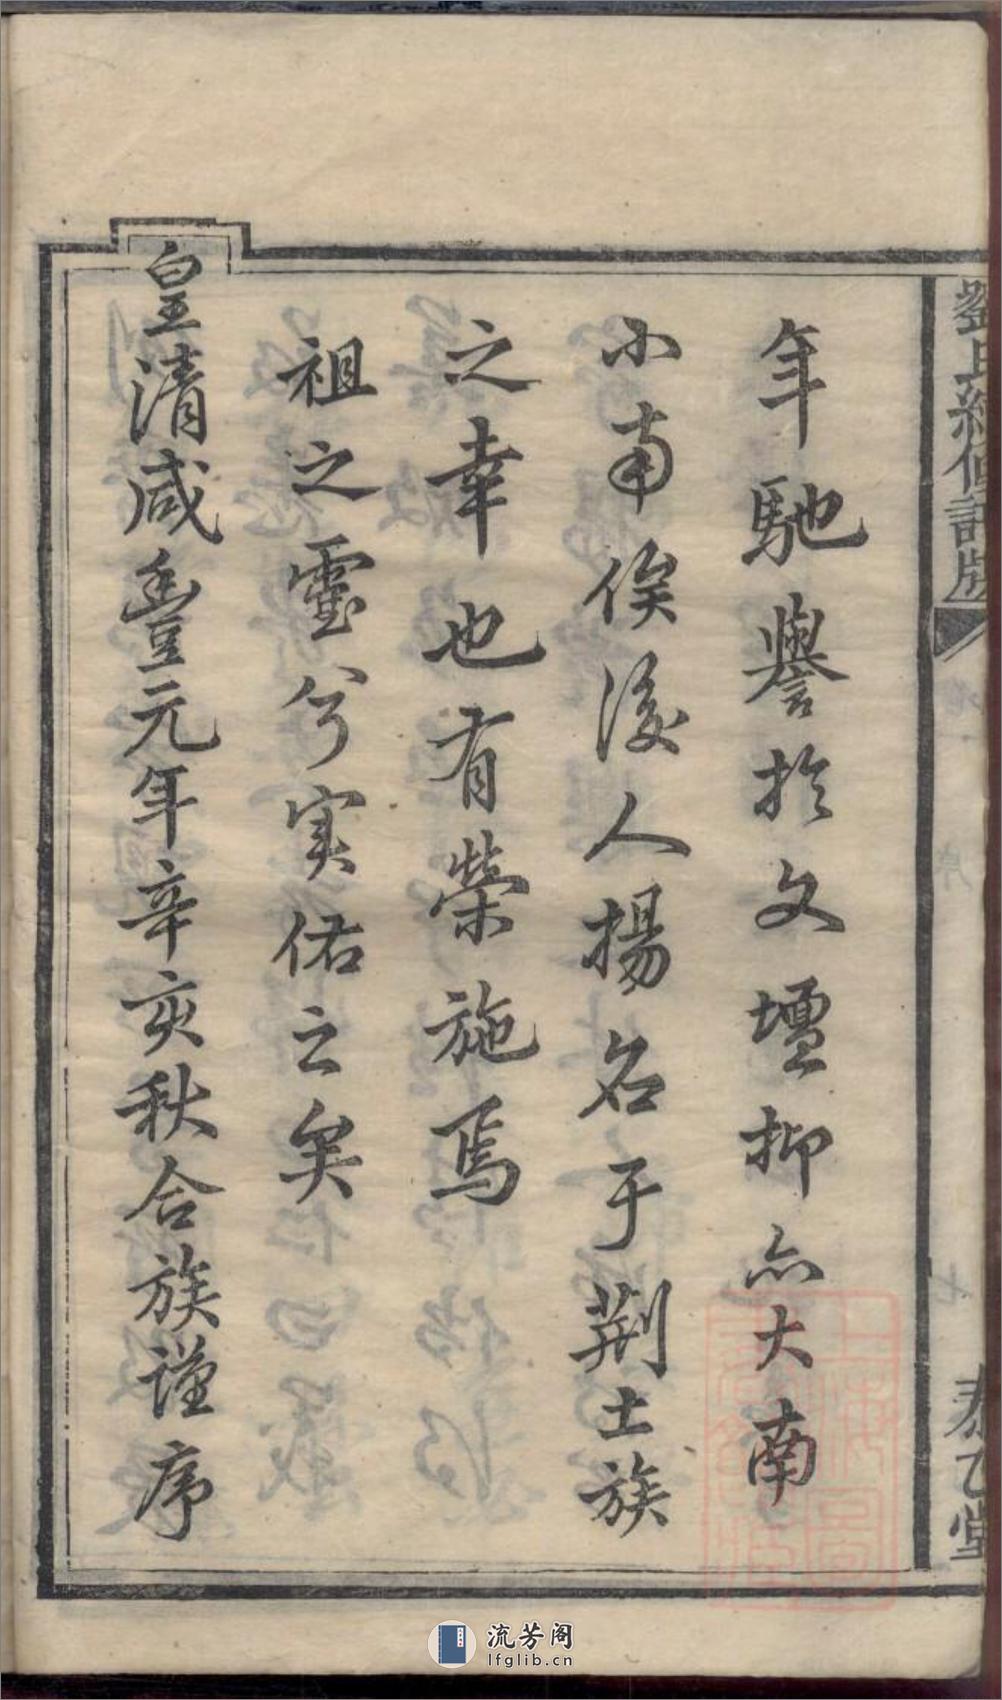 劉氏續修譜牒
泰乙堂
年馳譽於文壇抑亦大南
小南俟後人揚名于荆士族
之幸也有榮施焉
祖之靈兮実佑之矣
皇清咸豐元年辛亥秋合族謹序
流芳阁
lfglib.cn